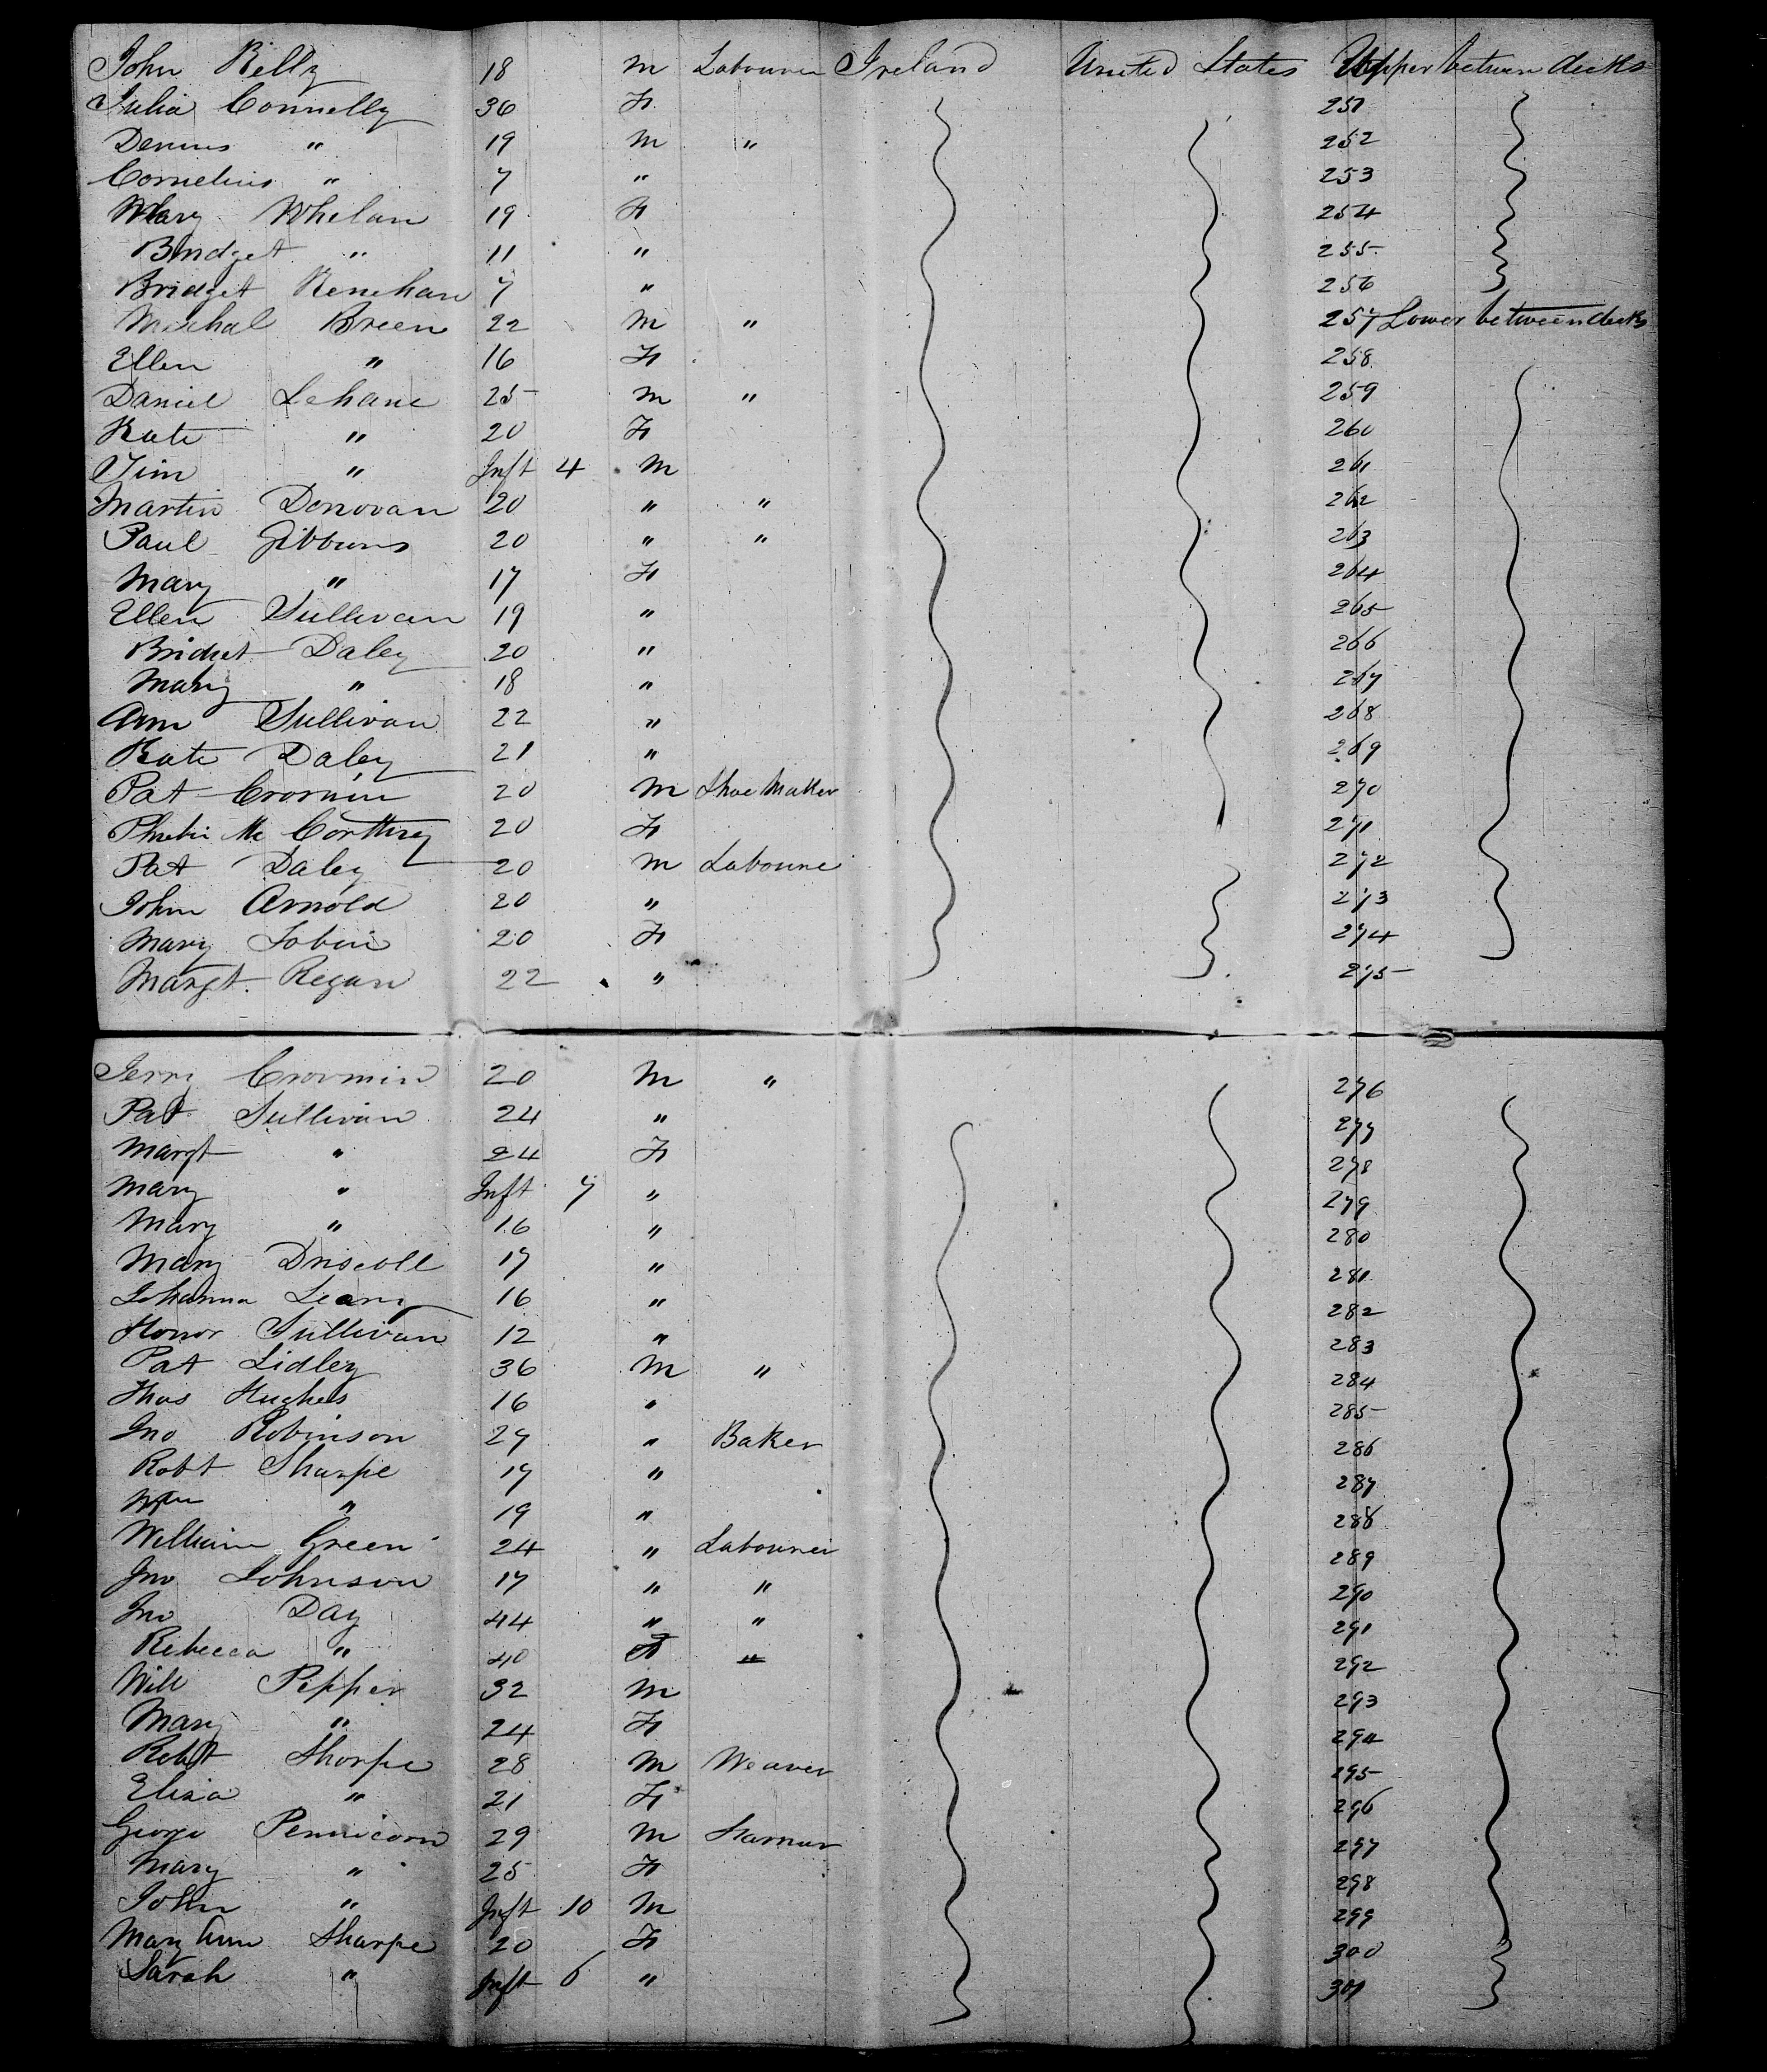 John Kelly 18 m Labourer Ireland United States Upper between decks
Julia Connelly 36 F 251
Dennis " 19 m " 252
Cornelius " 7 " 253
Mary Whelan 19 F 254
Bridget " 11 " 255
Bridget Renehan 7 " 256
Michal Breen 22 m " 257 Lower between decks
Ellen " 16 F 258
Daniel Lehane 25 m " 259
Kate " 20 F 260
Tim " Inft 4 m 261
Martin Donovan 20 " " 262
Paul Gibbons 20 " " 263
Mary " 17 F 264
Ellen Sullivan 19 " 265
Bridget Daley 20 " 266
Mary " 18 " 267
Ann Sullivan 22 " 268
Kate Daley 21 " 269
Pat Cronnin 20 m Shoe Maker 270
Phebie Mc Corthey 20 F 271
Pat Daley 20 m Laboure 272
John Arnold 20 " 273
Mary Tobin 20 F 274
Margt. Regan 22 " 275
Jerry Cronmin 20 m " 276
Pat Sullivan 24 " 277
Margt " 24 F 278
Mary " Inft 7 " 279
Mary " 16 " 280
Mary Driscoll 17 " 281
Johanna Leary 16 " 282
Honor Sullivan 12 " 283
Pat Lidley 36 m " 284
Thos Hughes 16 " 285
Jno Robinson 27 " Baker 286
Robt Sharpe 17 " 287
Wm " 19 " 288
William Green 24 " Labourer 289
Jno Johnson 17 " " 290
Jno Day 44 " " 291
Rebecca " 40 F " 292
Will Pepper 32 m 293
Mary " 24 F 294
Robt Sharpe 28 m Weaver 295
Eliza " 21 F 296
George Pennicorn 29 m Farmer 297
Mary " 25 F 298
John " Inft 10 m 299
Mary Ann Sharpe 20 F 300
Sarah " Inft 6 " 301